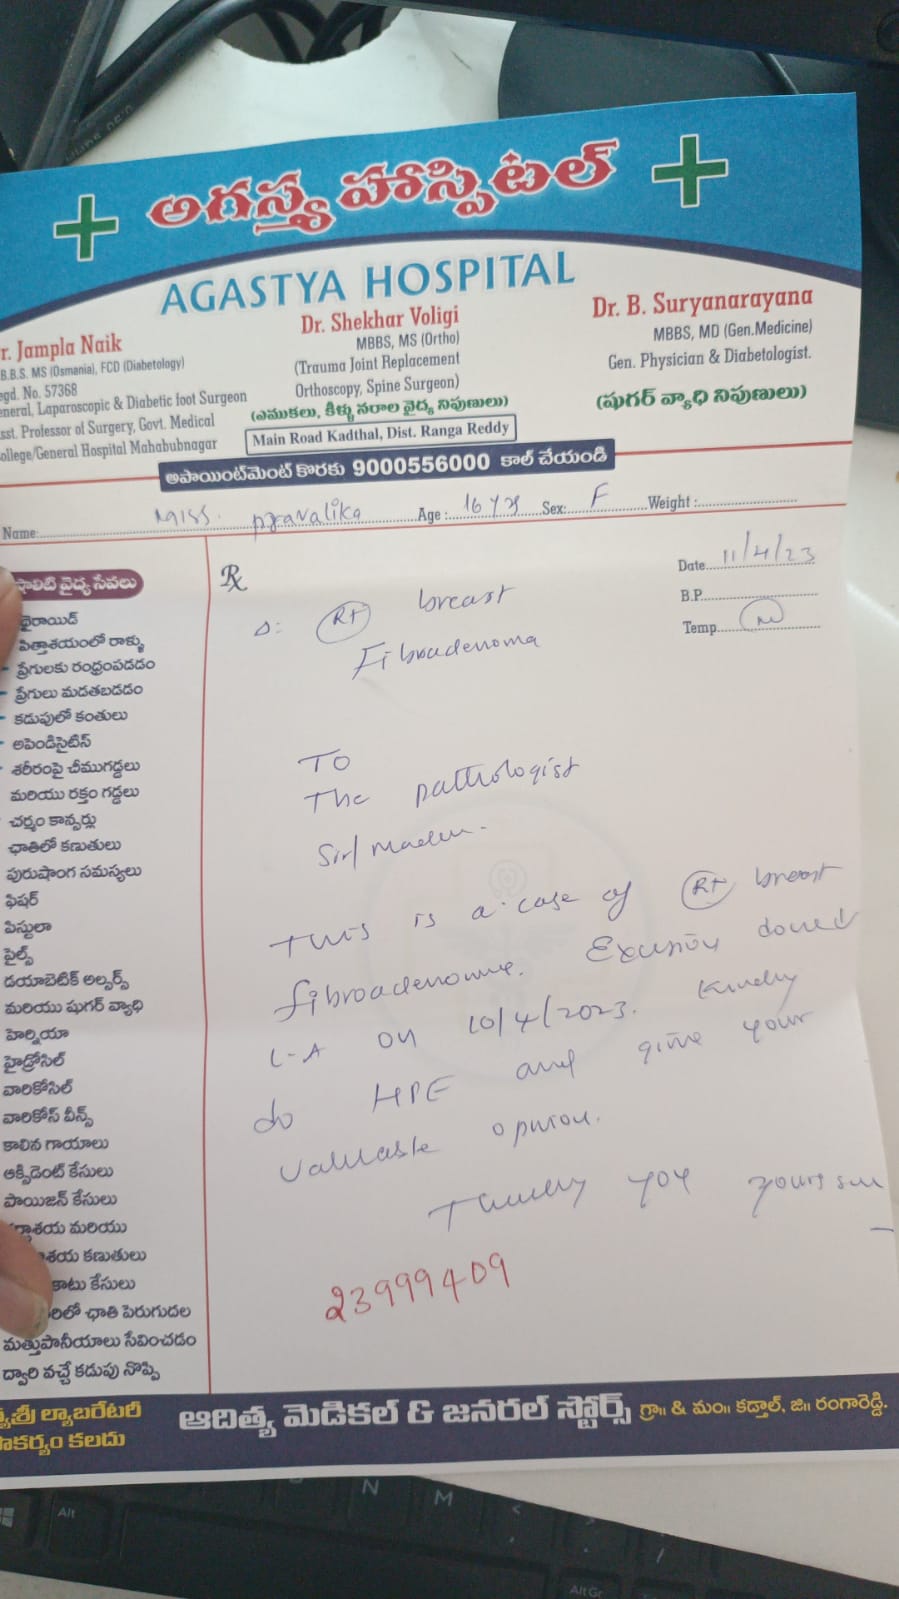 అగస్త్య హాస్పిటల్
AGASTYA HOSPITAL
r. Jampla Naik
B.B.S. MS (Osmania), FCD (Diabetology)
egd. No. 57368
eneral, Laparoscopic & Diabetic foot Surgeon
sst. Professor of Surgery, Govt. Medical
ollege/General Hospital Mahabubnagar
Dr. Shekhar Voligi
MBBS, MS (Ortho)
(Trauma Joint Replacement
Orthoscopy, Spine Surgeon)
(ఎముకలు, కీళ్ళు నరాల వైద్య నిపుణులు)
Main Road Kadthal, Dist. Ranga Reddy
Dr. B. Suryanarayana
MBBS, MD (Gen.Medicine)
Gen. Physician & Diabetologist.
(షుగర్ వ్యాధి నిపుణులు)
అపాయింట్‌మెంట్ కొరకు 9000556000 కాల్ చేయండి
Name: Miss. pravalika Age : 16 Yrs Sex: F Weight :
Date 11/4/23
B.P.
Temp. N
℞
Δ: Rt breast
Fibroadenoma
To
The pathologist
Sir/Madam.
This is a case of Rt breast
fibroadenoma. Excision done
L-A on 10/4/2023. Kindly
do HPE and give your
valuable opinion.
Thanking you yours
23999409
వైద్య సేవలు
థైరాయిడ్
పిత్తాశయంలో రాళ్ళు
ప్రేగులకు రంధ్రంపడడం
ప్రేగులు మడతబడడం
కడుపులో కంతులు
అపెండిసైటిస్
శరీరంపై చీముగడ్డలు
మరియు రక్తం గడ్డలు
చర్మం కాన్సర్లు
ఛాతిలో కణుతులు
పురుషాంగ సమస్యలు
ఫిషర్
పిస్టులా
పైల్స్
డయాబెటిక్ అల్సర్స్
మరియు షుగర్ వ్యాధి
హెర్నియా
హైడ్రోసిల్
వారికోసిల్
వారికోస్ వీన్స్
కాలిన గాయాలు
ఆక్సిడెంట్ కేసులు
పాయిజన్ కేసులు
శయ మరియు
శయ కణుతులు
కాటు కేసులు
లో ఛాతి పెరుగుదల
మత్తుపానీయాలు సేవించడం
ద్వారి వచ్చే కడుపు నొప్పి
శ్రీ ల్యాబరేటరీ
కర్యం కలదు
ఆదిత్య మెడికల్ & జనరల్ స్టోర్స్ గ్రా॥ & మం॥ కడ్తాల్, జి॥ రంగారెడ్డి.
N
M
Alt
Alt Gr